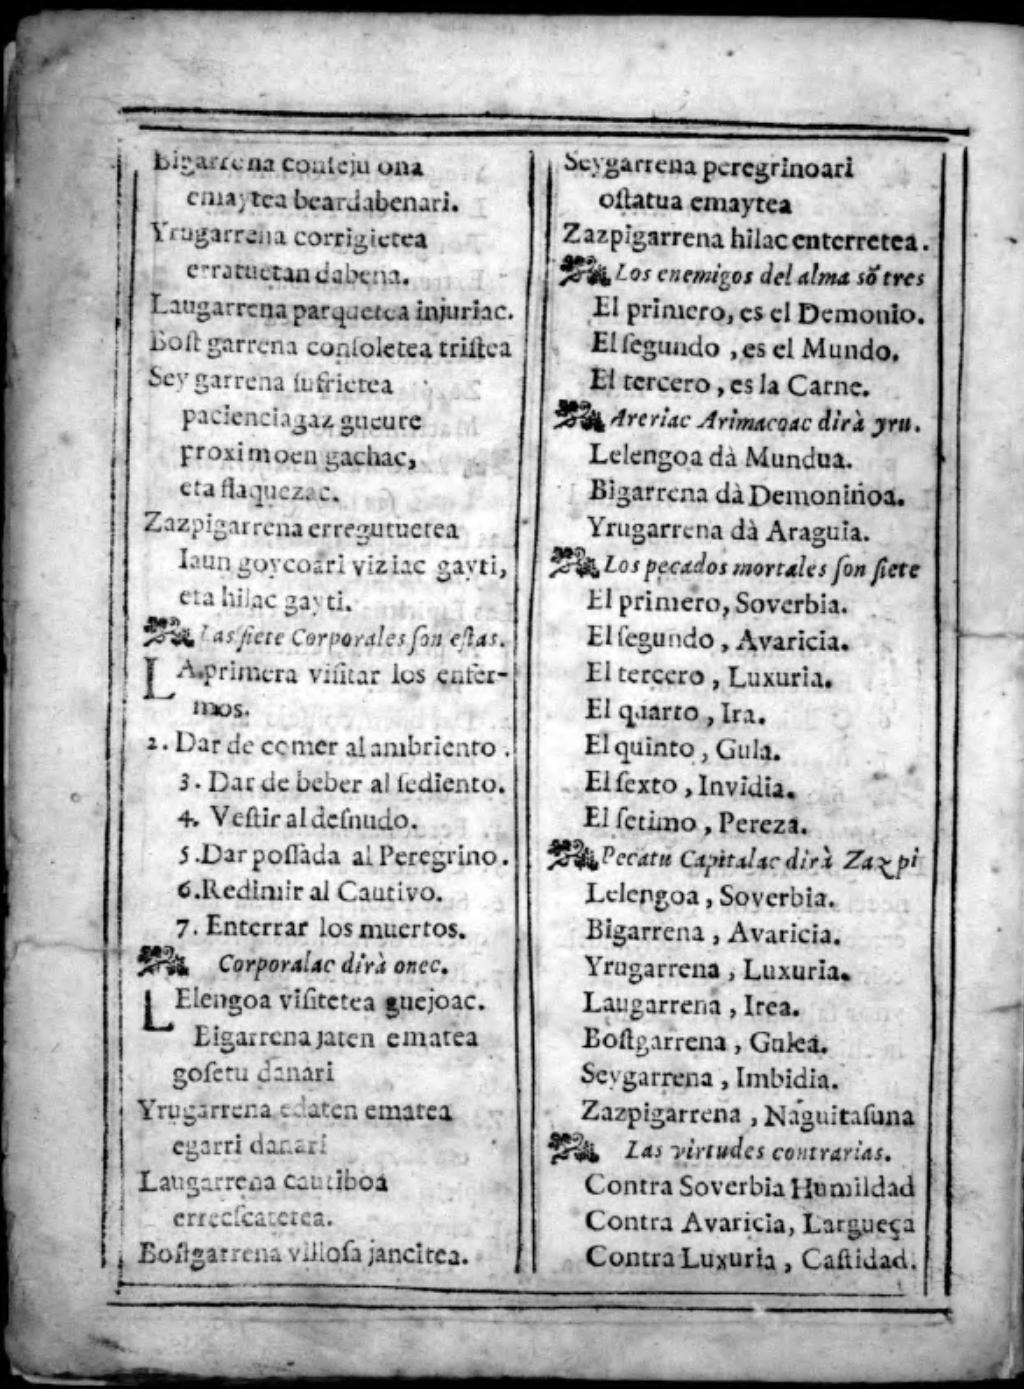 Bigarrena conseju ona
emaytea beardabenari.
Yrugarrena corrigietea
erratuetan dabena.
Laugarrena parquetea injuriac.
Boſtgarrena conſoletea triſtea
Seygarrena ſufrietea
pacienciagaz gueure
proximoen gachac,
eta flaquezac.
Zazpigarrena erregutuetea
Iaun goycoari viziac gayti,
eta hilac gayti.
Las ſiete Corporales ſon eſtas.
LA primera viſitar los enfer-
mos.
2. Dar de comer al ambriento.
3. Dar de beber al ſediento.
4. Veſtir al deſnudo.
5. Dar poſſada al Peregrino.
6. Redimir al Cautivo.
7. Enterrar los muertos.
Corporalac dirà onec.
LElengoa viſitetea guejoac.
Bigarrena jaten ematea
goſetu danari
Yrugarrena edaten ematea
egarri danari
Laugarrena cautiboa
erreeſcatetea.
Boſtgarrena villoſa jancitea.
Seygarrena peregrinoari
oſtatua emaytea
Zazpigarrena hilac enterretea.
Los enemigos del alma sõ tres
El primero, es el Demonio.
El ſegundo, es el Mundo.
El tercero, es la Carne.
Areriac Arimacoac dirà yru.
Lelengoa dà Mundua.
Bigarrena dà Demoniñoa.
Yrugarrena dà Araguia.
Los pecados mortales ſon ſiete
El primero, Soverbia.
El ſegundo, Avaricia.
El tercero, Luxuria.
El quarto, Ira.
El quinto, Gula.
El ſexto, Invidia.
El ſetimo, Pereza.
Pecatu Capitalac dirà Zazpi
Lelengoa, Soverbia.
Bigarrena, Avaricia.
Yrugarrena, Luxuria.
Laugarrena, Irea.
Boſtgarrena, Gulea.
Seygarrena, Imbidia.
Zazpigarrena, Naguitaſuna
Las virtudes contrarias.
Contra Soverbia Humildad
Contra Avaricia, Largueça
Contra Luxuria, Caſtidad.